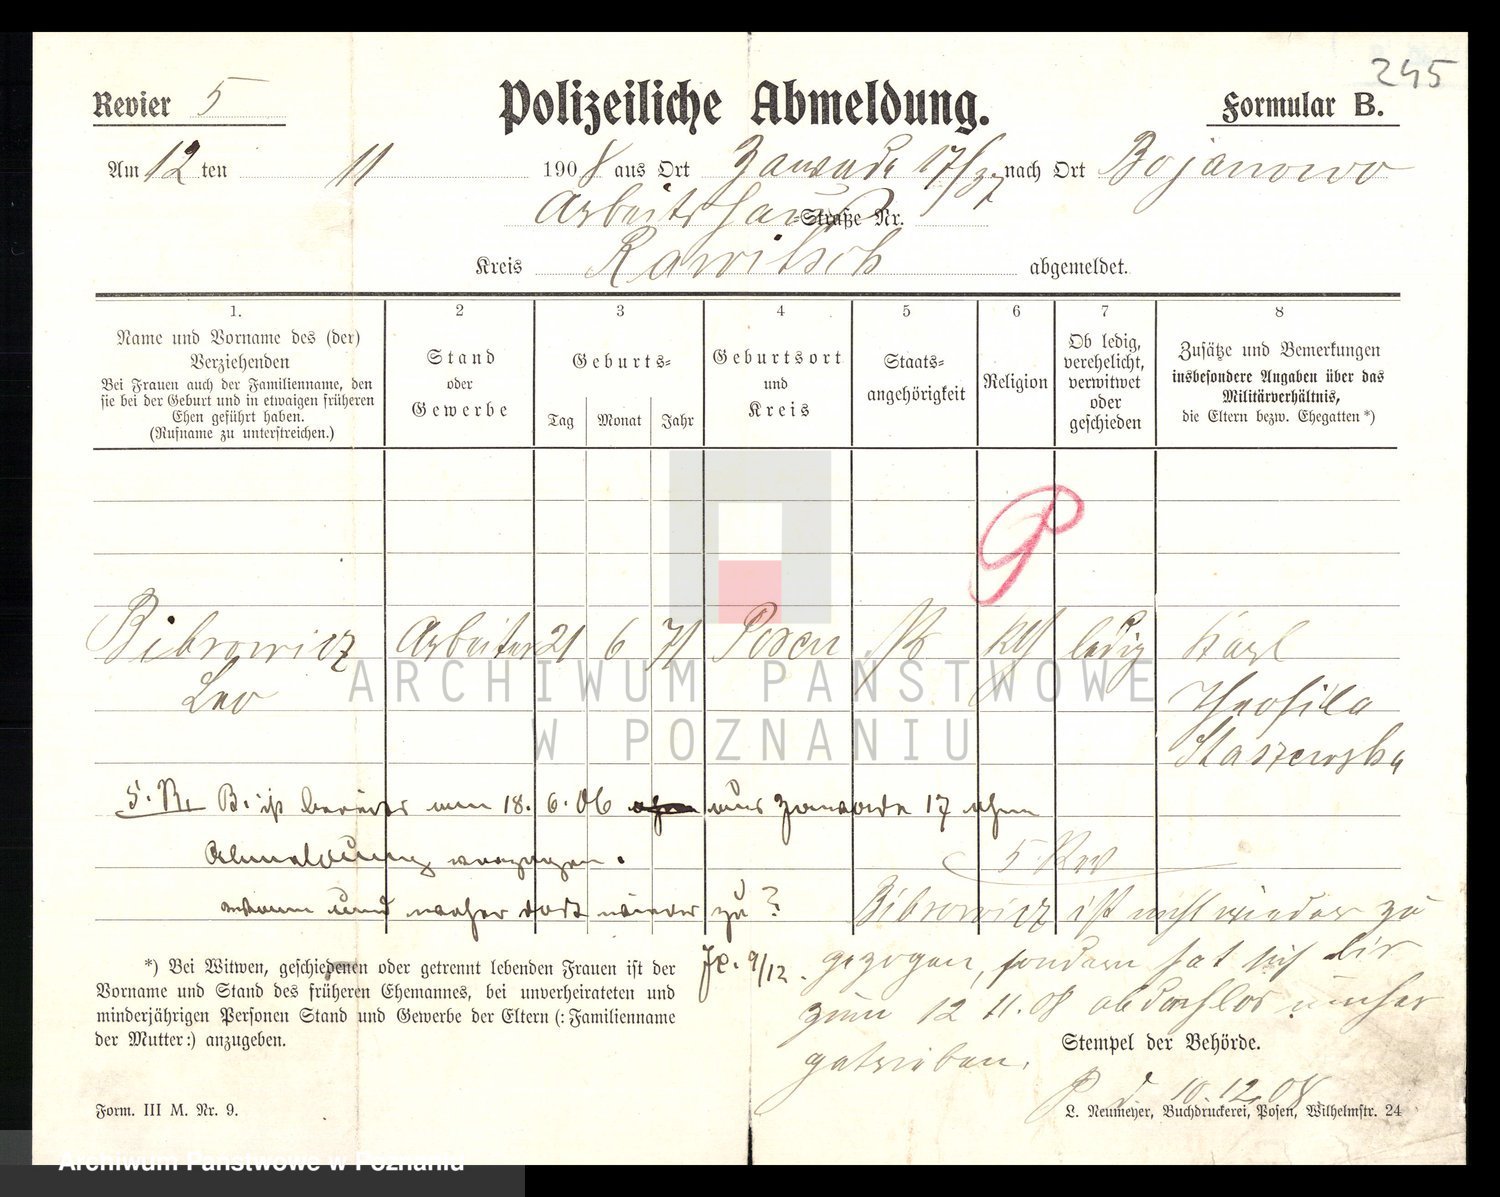 245
Revier 5
Polizeiliche Abmeldung.
Formular B.
Am 12 ten 11 1908 aus Ort Zawade 17/37 nach Ort Bojanowo
Arbeitshaus -Straße Nr.
Kreis Rawitsch abgemeldet.
1.
Name und Vorname des (der)
Verziehenden
Bei Frauen auch der Familienname, den
sie bei der Geburt und in etwaigen früheren
Ehen geführt haben.
(Rufname zu unterstreichen.)
2
Stand
oder
Gewerbe
3
Geburts-
Tag Monat Jahr
4
Geburtsort
und
Kreis
5
Staats-
angehörigkeit
6
Religion
7
Ob ledig,
verehelicht,
verwitwet
oder
geschieden
8
Zusätze und Bemerkungen
insbesondere Angaben über das
Militärverhältnis,
die Eltern bezw. Ehegatten*)
Bibrowicz Arbeiter 21 6 71 Posen Pr kath ledig Karl
Leo Theofila
Staszewska
5. R. B. ist bereits am 18. 6. 06 aus Zawade 17 ohne
Abmeldung verzogen.
Wann und woher dort wieder zu?
9/12.
5 Rev
Bibrowicz ist nicht wieder zu
gezogen, sondern hat sich bis
zum 12 11. 08 obdachlos umher
getrieben.
P d 10. 12. 08
*) Bei Witwen, geschiedenen oder getrennt lebenden Frauen ist der
Vorname und Stand des früheren Ehemannes, bei unverheirateten und
minderjährigen Personen Stand und Gewerbe der Eltern (: Familienname
der Mutter:) anzugeben.
Stempel der Behörde.
Form. III M. Nr. 9.
L. Neumeyer, Buchdruckerei, Posen, Wilhelmstr. 24
ARCHIWUM PAŃSTWOWE
W POZNANIU
Archiwum Państwowe w Poznaniu